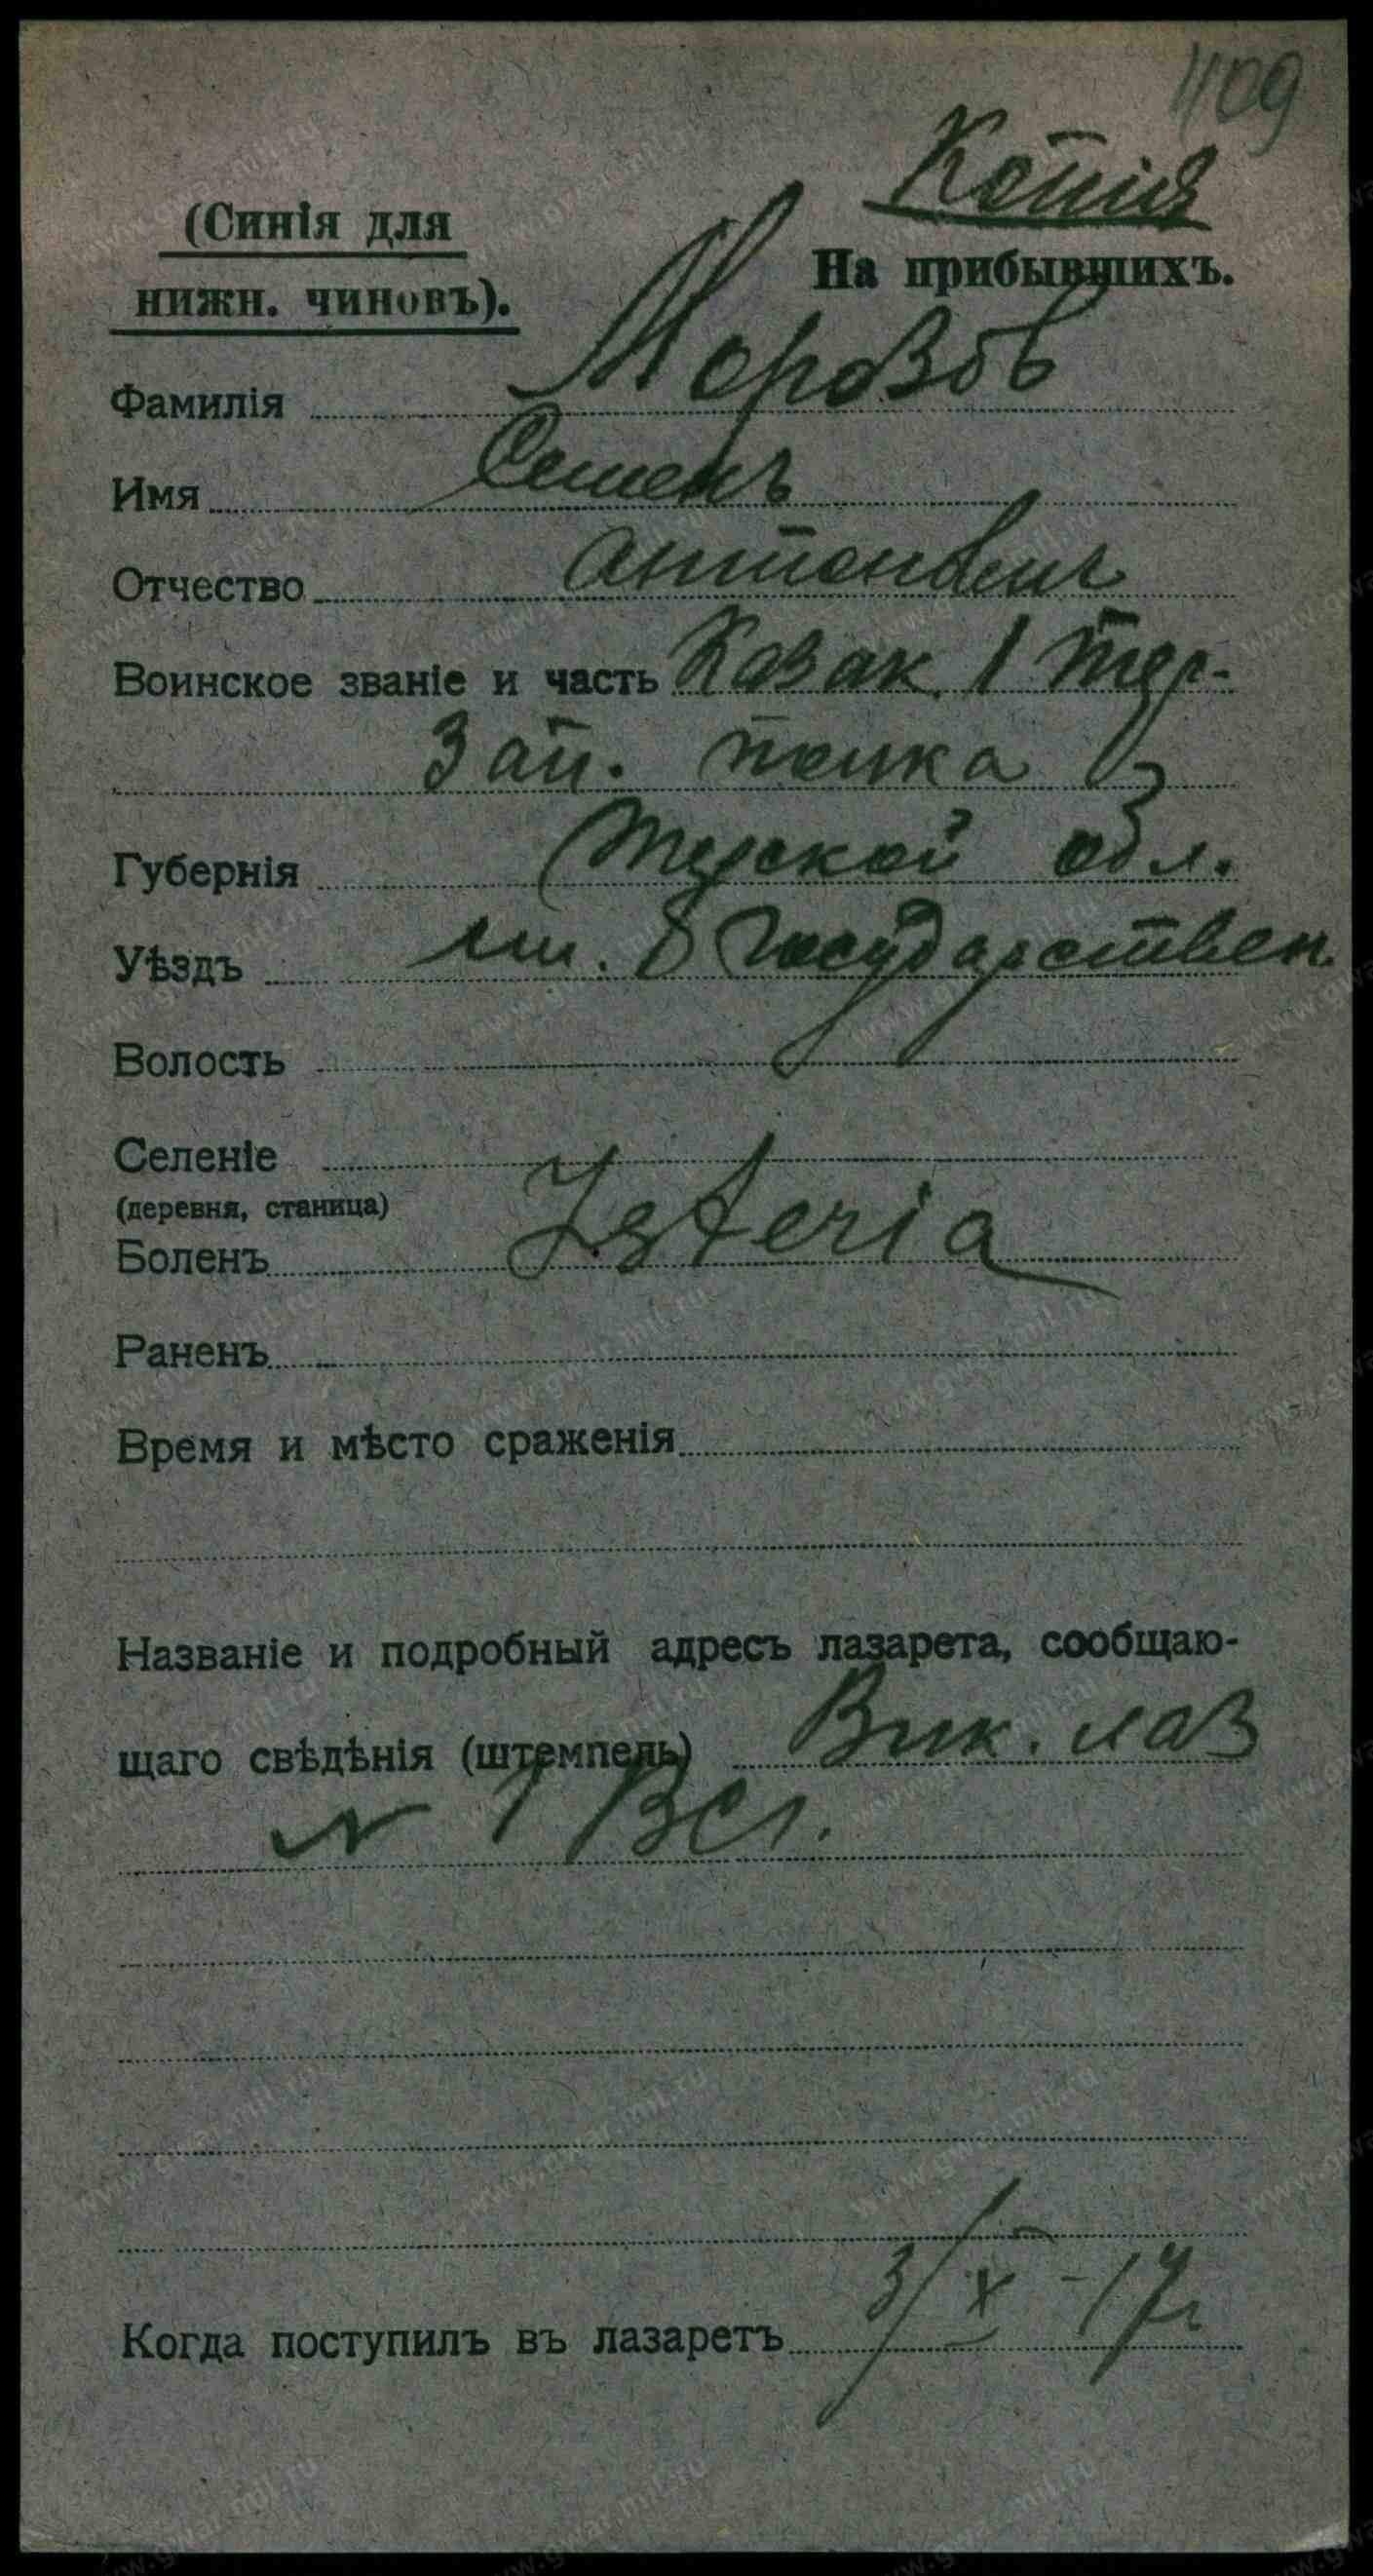 1109
Копія
(Синія для
нижн. чиновъ).
На прибывшихъ.
Фамилія Морозовъ
Имя Семенъ
Отчество Антонович
Воинское званіе и часть Козак. 1 Тер-
Зап. полка
Губернія Терской обл.
Уѣздъ ст. Государствен.
Волость
Селеніе
(деревня, станица)
Боленъ Isteria
Раненъ
Время и мѣсто сраженія
Названіе и подробный адресъ лазарета, сообщаю-
щаго свѣдѣнія (штемпель) Вик. лаз
№ 1 ВСГ.
Когда поступилъ въ лазаретъ 3/X-17г